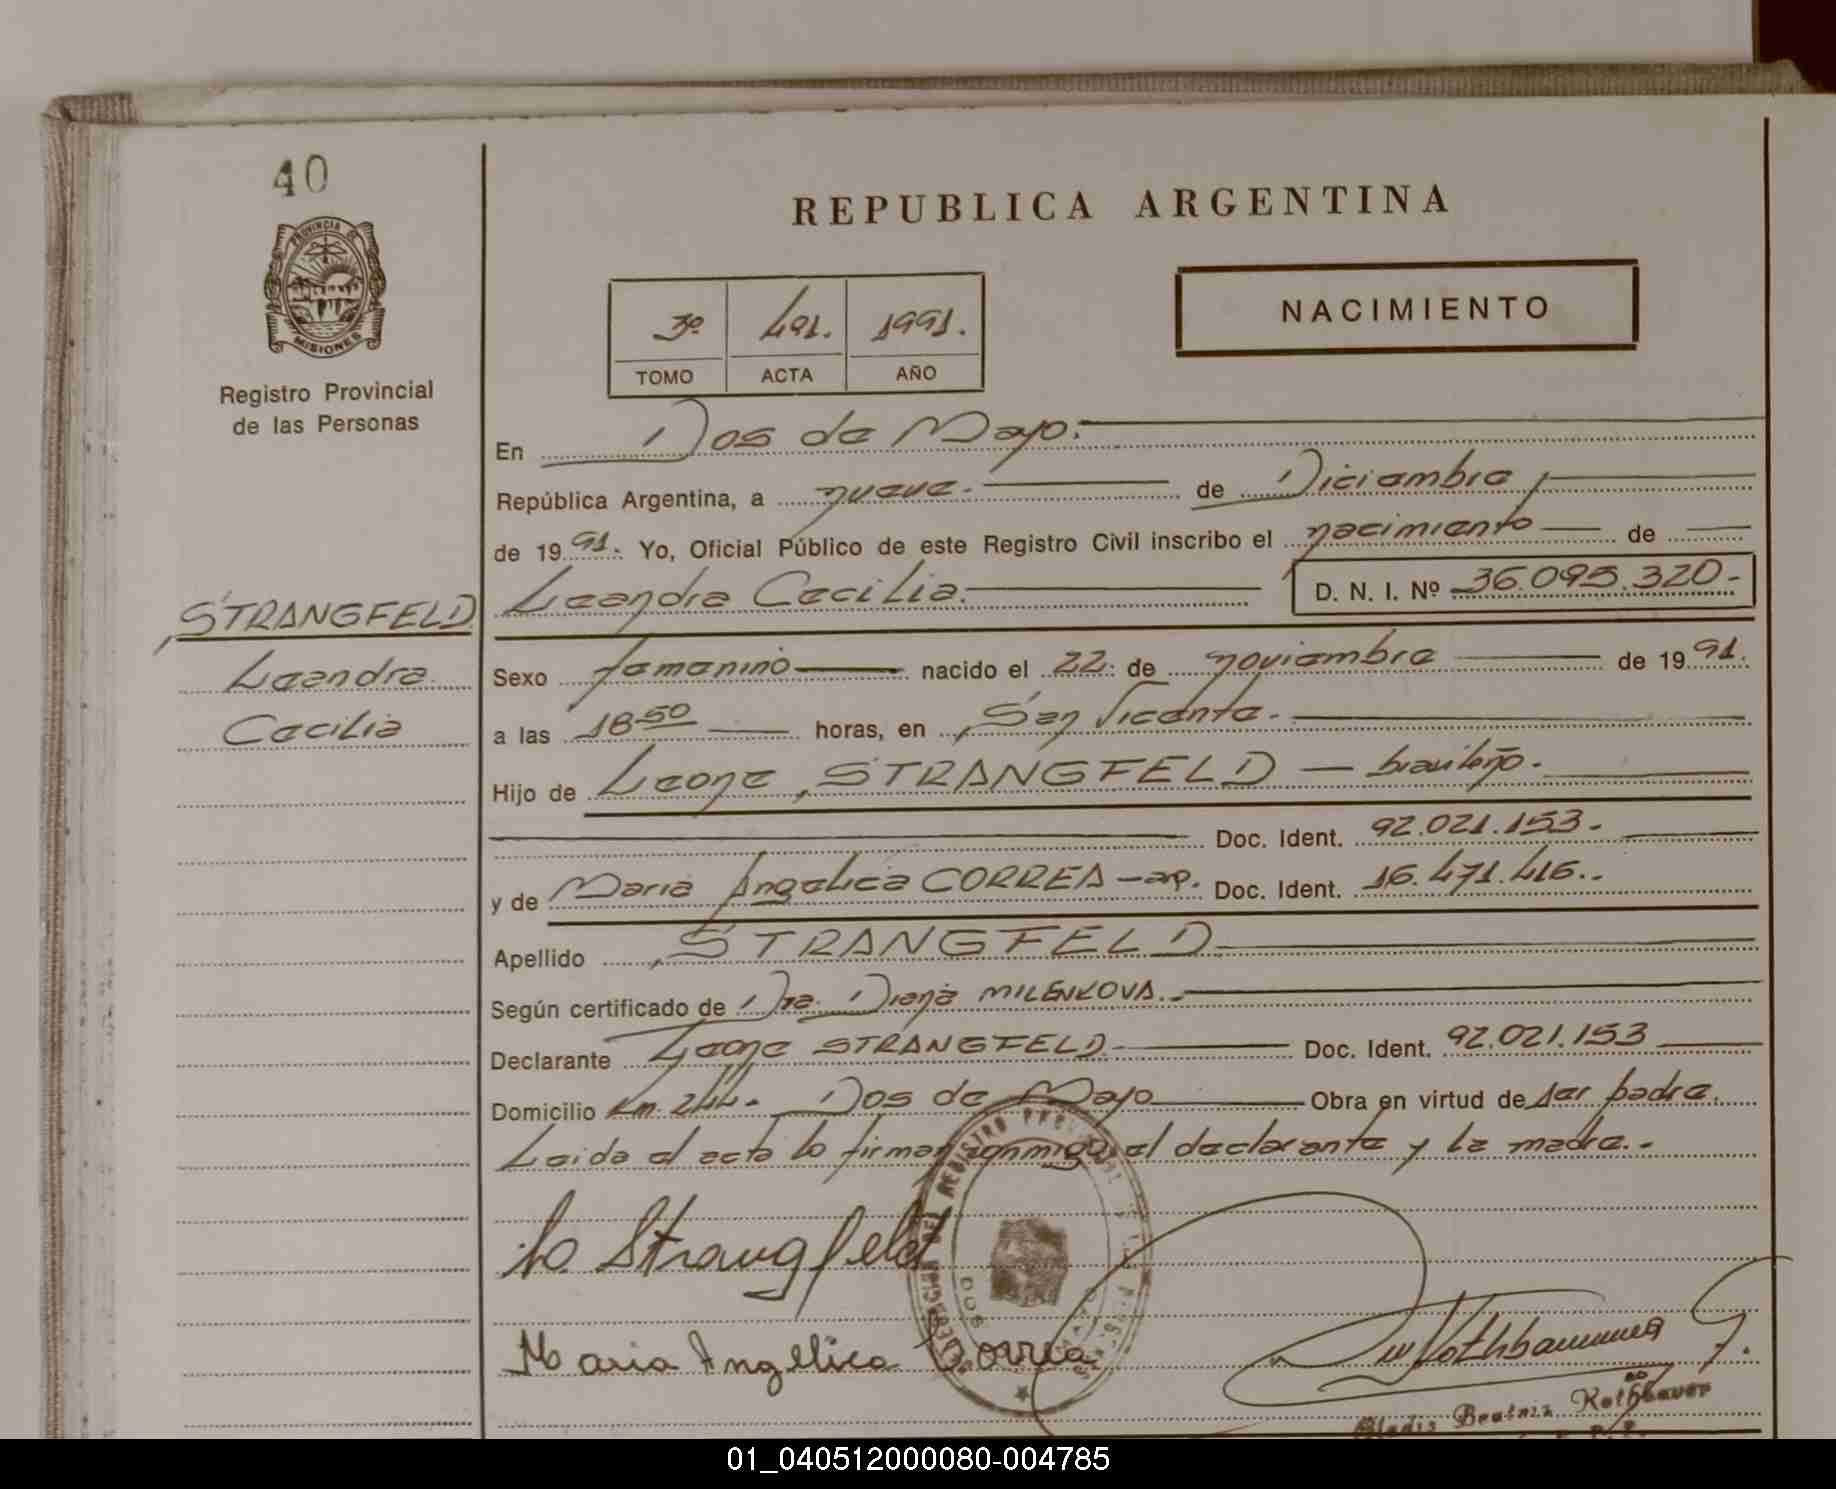 40
PROVINCIA DE
MISIONES
Registro Provincial
de las Personas
REPUBLICA ARGENTINA
NACIMIENTO
3º 491. 1991.
TOMO ACTA AÑO
En Dos de Mayo.
República Argentina, a nueve. de Diciembre
de 19 91. Yo, Oficial Público de este Registro Civil inscribo el nacimiento de
Leandra Cecilia. D. N. I. Nº 36.095.320.-
STRANGFELD
Leandra
Cecilia
Sexo femenino nacido el 22. de noviembre de 19 91.
a las 18-50 horas, en San Vicente.
Hijo de Leone STRANGFELD — brasileño.
Doc. Ident. 92.021.153.
y de Maria Angelica CORREA - arg. Doc. Ident. 16.471.416..
Apellido STRANGFELD
Según certificado de Dra. Diana MILENKOVA.
Declarante Leone STRANGFELD. Doc. Ident. 92.021.153
Domicilio Km. 244. Dos de Mayo Obra en virtud de ser padre.
Leida el acta lo firman conmigo el declarante y la madre.-
Lo Strangfeld
Maria Angelica Correa
DEL REGISTRO
DOS
Gladis Beatriz Rothbauer
01_040512000080-004785